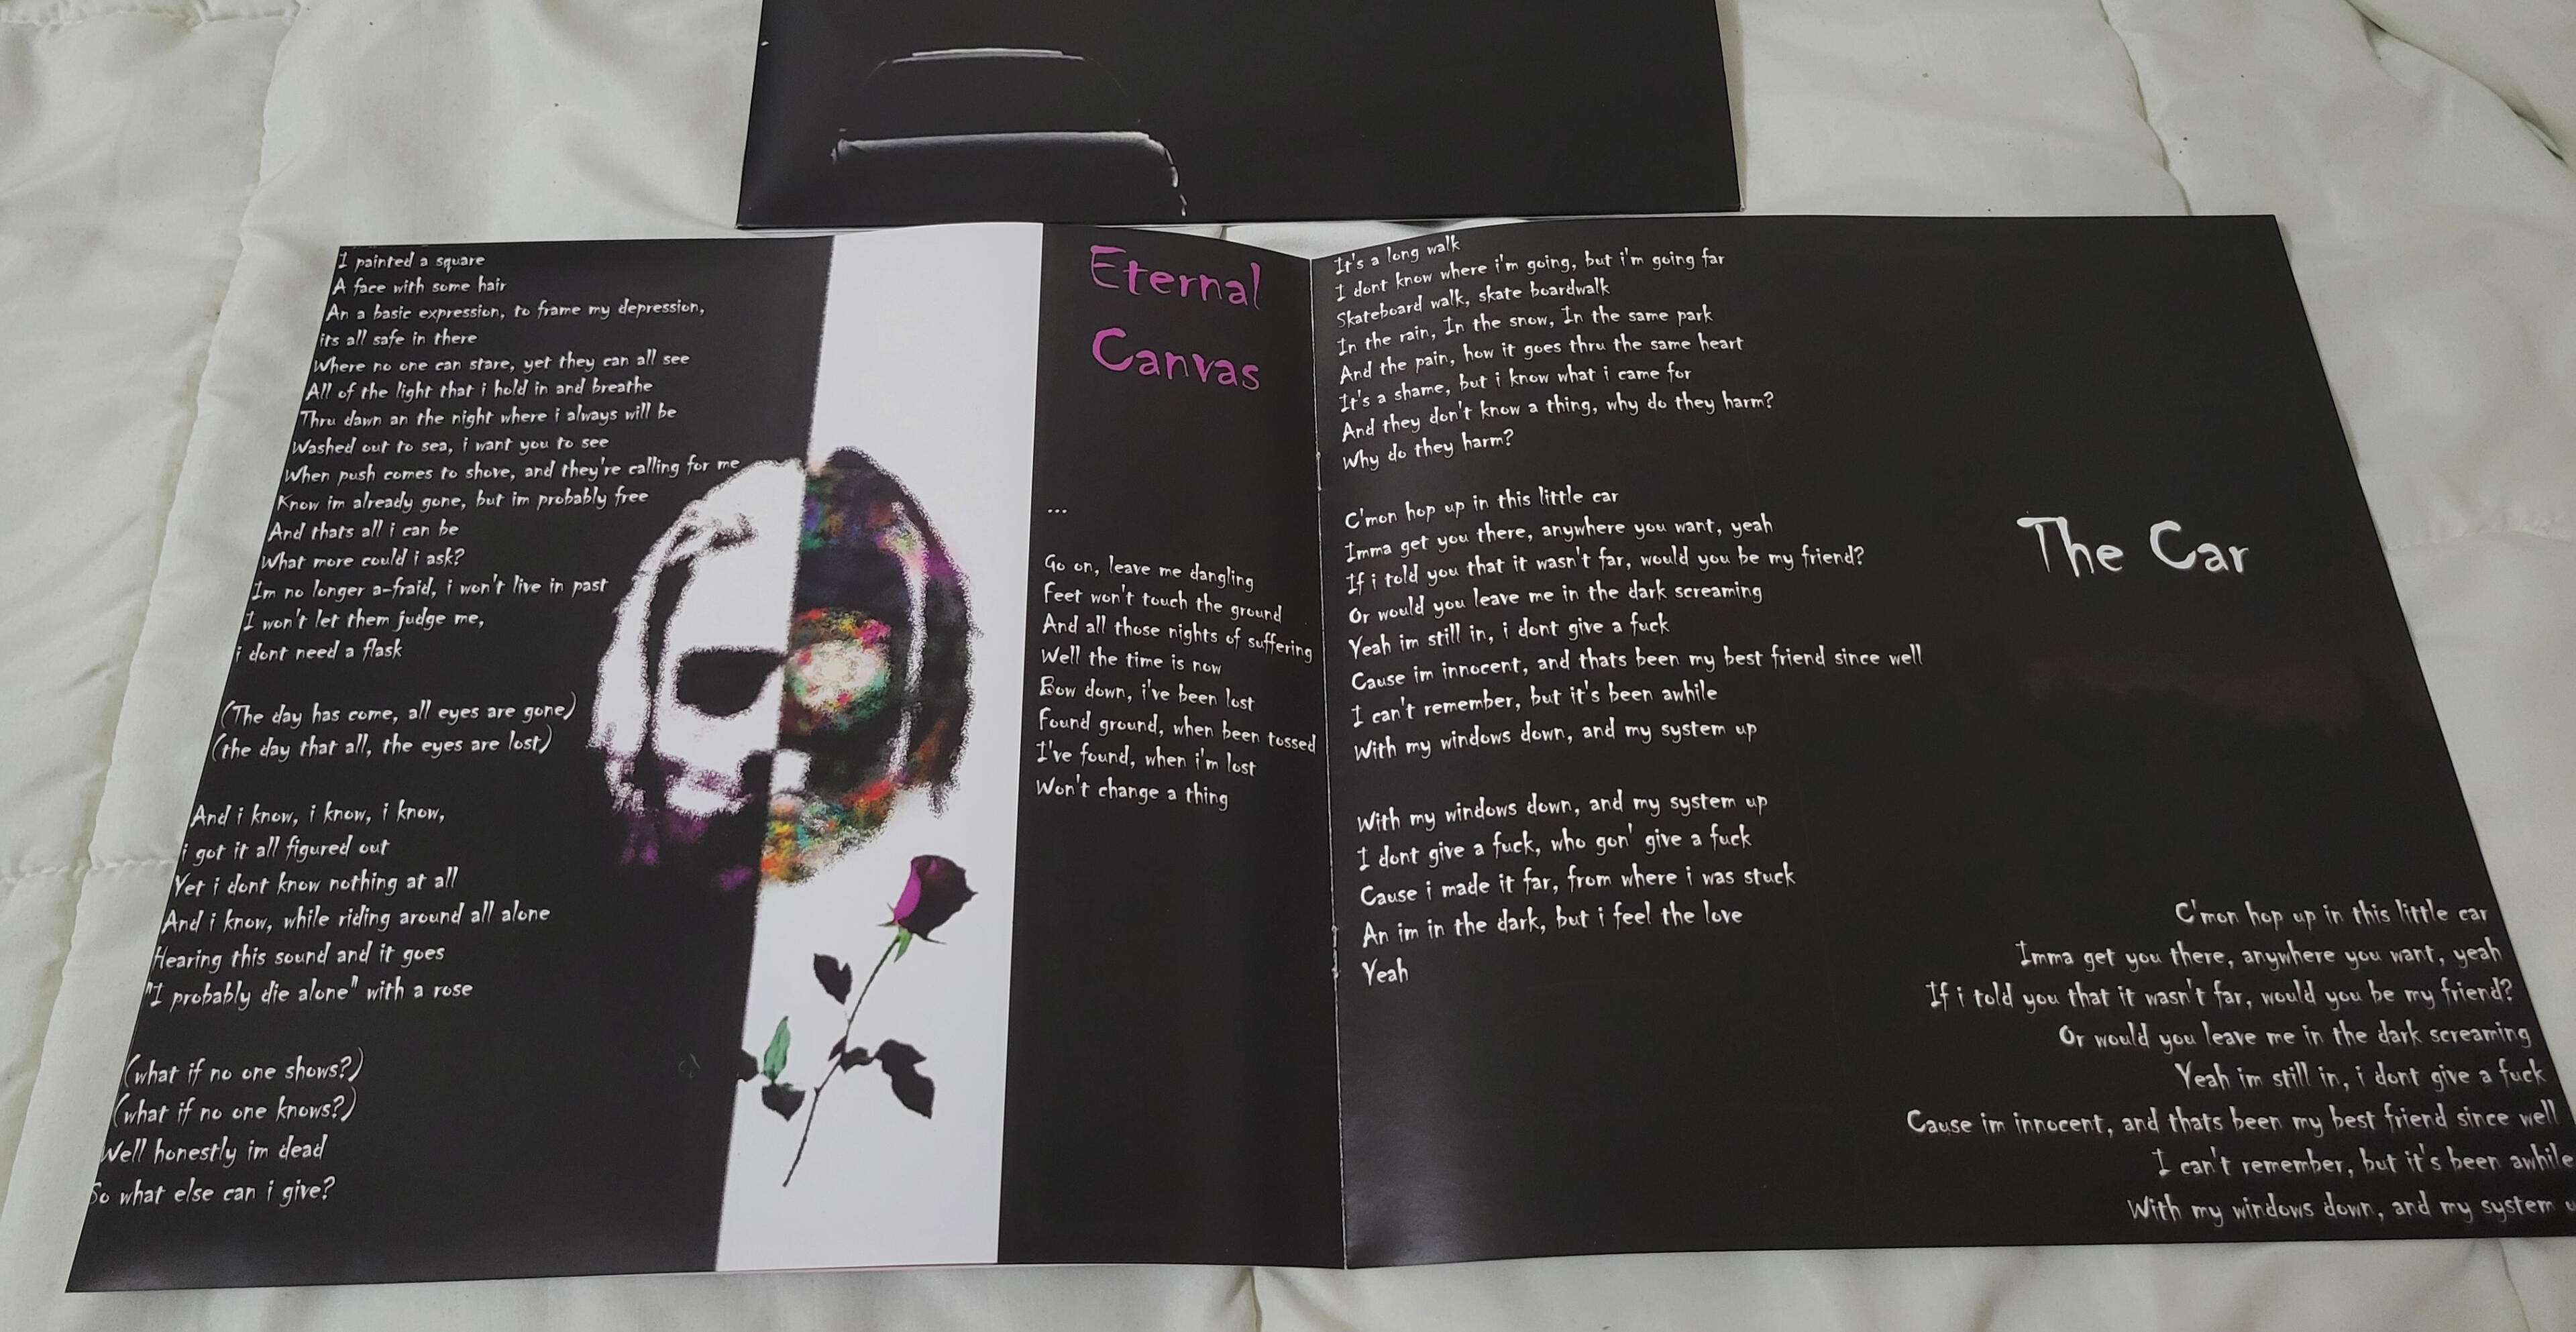 I painted a square
A face with some hair
An a basic expression, to frame my depression,
its all safe in there
Where no one can stare, yet they can all see
All of the light that i hold in and breathe
Thru dawn an the night where i always will be
Washed out to sea, i want you to see
When push comes to shove, and they're calling for me
Know im already gone, but im probably free
And thats all i can be
What more could i ask?
Im no longer a-fraid, i won't live in past
I won't let them judge me,
i dont need a flask
(The day has come, all eyes are gone)
(the day that all, the eyes are lost)
And i know, i know, i know,
i got it all figured out
Yet i dont know nothing at all
And i know, while riding around all alone
Hearing this sound and it goes
"I probably die alone" with a rose
(what if no one shows?)
(what if no one knows?)
Well honestly im dead
So what else can i give?
Eternal
Canvas
...
Go on, leave me dangling
Feet won't touch the ground
And all those nights of suffering
Well the time is now
Bow down, i've been lost
Found ground, when been tossed
I've found, when i'm lost
Won't change a thing
It's a long walk
I dont know where i'm going, but i'm going far
Skateboard walk, skate boardwalk
In the rain, In the snow, In the same park
And the pain, how it goes thru the same heart
It's a shame, but i know what i came for
And they don't know a thing, why do they harm?
Why do they harm?
C'mon hop up in this little car
Imma get you there, anywhere you want, yeah
If i told you that it wasn't far, would you be my friend?
Or would you leave me in the dark screaming
Yeah im still in, i dont give a fuck
Cause im innocent, and thats been my best friend since well
I can't remember, but it's been awhile
With my windows down, and my system up
With my windows down, and my system up
I dont give a fuck, who gon' give a fuck
Cause i made it far, from where i was stuck
An im in the dark, but i feel the love
Yeah
The Car
C'mon hop up in this little car
Imma get you there, anywhere you want, yeah
If i told you that it wasn't far, would you be my friend?
Or would you leave me in the dark screaming
Yeah im still in, i dont give a fuck
Cause im innocent, and thats been my best friend since well
I can't remember, but it's been awhile
With my windows down, and my system